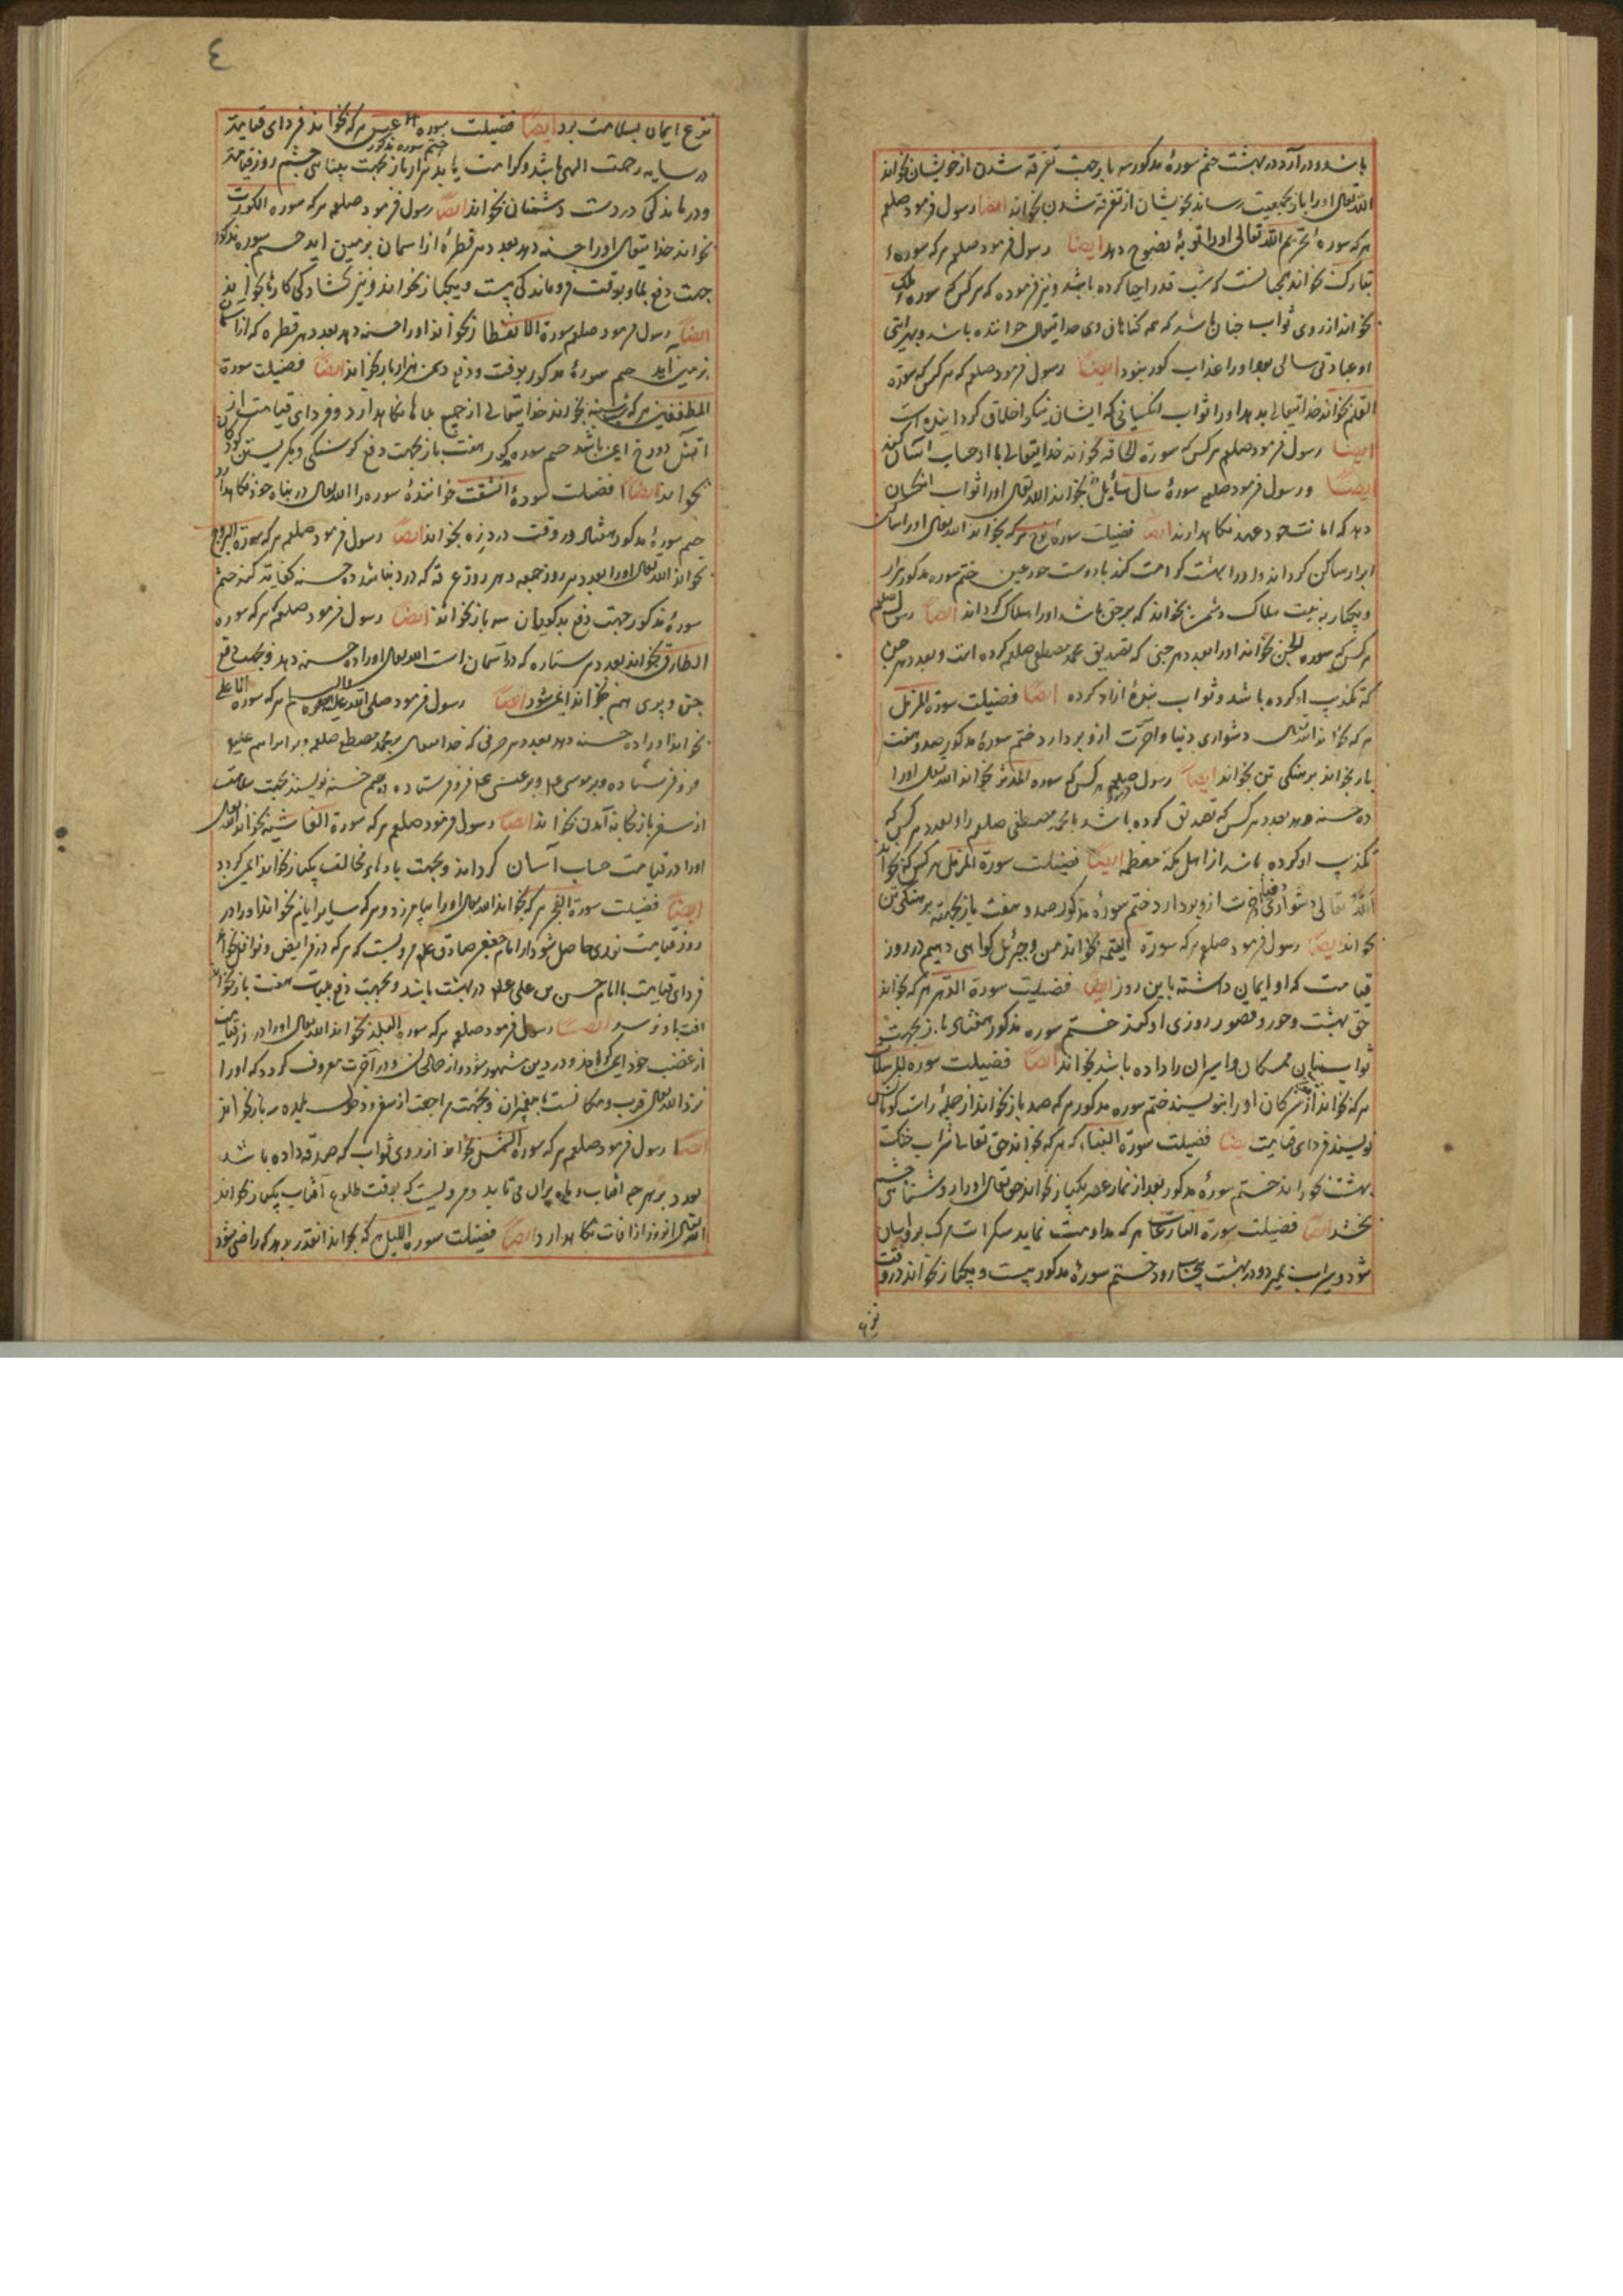 باشد و در آرد در بهشت ختم سورهٔ مذکور سه بار جهت تفرقه شدن از خویشان بخواند
الله تعالی او را باز بجمعیت رساند بخویشان از تفرقه شدن بخواند ایضا رسول فرمود صلعم
هر که سورهٔ تحریم الله تعالی او را توبهٔ نصوح دهد ایضا رسول فرمود صلعم هر که سورهٔ
تبارک بخواند همچنانست که شب قدر احیا کرده باشد و نیز فرموده که هر کس که سوره ملک
بخواند از روی ثواب چنان باشد که همه کتابهای خدایتعالی خوانده باشد و
او عبادتی سالی بود او را عذاب کور بنود ایضا رسول فرمود صلعم که هر کس که سورة
القلم بخواند خدایتعالی بدهد او را ثواب انکسانی که ایشان نیکو اخلاق کردانیده است
ایضا رسول فرمود صلعم هر کس که سورة الحاقه بخواند خدایتعالی با او حساب آسان کند
ایضا و رسول فرمود صلعم سورهٔ سال سایل بخواند الله تعالی او را ثواب انکسان
دهد که امانت خود و عهد نکاهدارند ایضا فضیلت سورهٔ نوح هر که بخواند الله تعالی او را
ابرار ساکن کرداند و او را بهشت کرامت کند با دوست حور عین ختم سوره مذکور هزار
و یکبار به نیت هلاک دشمن بخواند که بر حق باشد او را هلاک کرداند ایضا رسول صلعم
هر کس که سوره الجن بخواند او را بعدد هر جنی که تصدیق محمد مصطفی صلعم کرده است و بعدد هر جن
که تکذیب او کرده باشد و ثواب بندهٔ ازاد کرده ایضا فضیلت سورة المزمل
هر که بخواند الله تعالی دشواری دنیا و آخرت ازو بردارد ختم سورهٔ مذکور صد و هفت
بار بخواند بر سنکی تن بخواند ایضا رسول صلعم فرمود هر کس که سوره المدثر بخواند الله تعالی او را
ده حسنه دهد بعدد هر کس که تصدیق کرده باشد با محمد مصطفی صلعم را و بعدد هر کس که
تکذیب او کرده باشد از اهل مکهٔ معظمه ایضا فضیلت سورة المزمل هر کس که بخواند
الله تعالی دشواری دنیا و آخرت ازو بردارد ختم سورهٔ مذکور صد و هفت بار بجهة بر سنکی تن
بخواند ایضا رسول فرمود صلعم هر که سورة القیمه بخواند من و جبرئیل کواهی دهیم در روز
قیامت که او ایمان داشته باین روز ایضا فضیلت سورة الدهر هر که بخواند
حق بهشت و حور و قصور روزی او کند ختم سوره مذکور هفتاد بار بجهت
ثواب مسکان و اسیران را داده باشد بخواند ایضا فضیلت سوره المرسلات
هر که بخواند از مشرکان او را ننویسند ختم سوره مذکور هر که صد بار بخواند از جملهٔ راست کویان
نویسند فردای قیامت ایضا فضیلت سورة النباء که هر که بخواند حق تعالی شراب خنک
بهشت بخوراند ختم سورهٔ مذکور بعد از نماز عصر یکبار بخواند حق تعالی او را روشنائی چشم
بخشد ایضا فضیلت سورة النازعات هر که مداومت نماید سکرات مرک برو آسان
شود و سیراب بمیرد و در بهشت رود ختم سورهٔ مذکور بیست و یکبار بخواند در وقت
٤
نزع ایمان بسلامت برد ایضا فضیلت سوره عبس هر که بخواند فردای قیامة
در سایه رحمت الهی باشد و کرامت یابد ختم سوره مذکور هزار بار بجهت بینایی چشم روز قیامة
و درماندکی در دست دشمنان بخواند ایضا رسول فرمود صلعم هر که سوره الکورت
بخواند خدایتعالی او را حسنه دهد بعدد هر قطرهٔ از آسمان بزمین اید ختم سوره مذکور
جهت دفع بلا و بوقت فروماندکی بیست و یکبار بخواند و نیز کشادکی کارها بخواند
ایضا رسول فرمود صلعم سورة الانفطار بخواند او را حسنه دهد بعدد هر قطره که از آسمان
بزمین آید ختم سورهٔ مذکور بوقت و دفع دشمن هزار بار بخواند ایضا فضیلت سورة
المطففین هر که بخواند خدایتعالی از جمیع بلاها نکاهدارد و فردای قیامت از
آتش دوزخ ایمن باشد ختم سوره مذکور هفت بار بجهت دفع کرسنکی و کریستن کودکان
بخواند ایضا فضیلت سورهٔ انشقت خوانندهٔ سوره را الله تعالی در پناه خود نکاهدارد
ختم سورهٔ مذکور هفتاد در وقت درد زه بخواند ایضا رسول فرمود صلعم هر که سورة البروج
بخواند الله تعالی او را بعدد هر روز جمعه و هر روز عرفه که در دنیا باشد ده حسنه کند ختم
سورهٔ مذکور جهت دفع بدکویان سه بار بخواند ایضا رسول فرمود صلعم هر که سوره
الطارق بخواند بعدد هر ستاره که در آسمان است الله تعالی او را ده حسنه دهد و بجهت دفع
جن و پری هم بخواند ایمن شود ایضا رسول فرمود صلی الله علیه و آله هر که سوره الاعلی
بخواند او را ده حسنه دهد بعدد هر حرفی که خدایتعالی بر محمد مصطفی صلعم و بر ابراهیم علیه
فرو فرستاده و بر موسی و بر عیسی فرو فرستاده ختم نویسند بجهت سلامت
از سفر باز بخانه آمدن بخواند ایضا رسول فرمود صلعم هر که سورة الغاشیه بخواند الله تعالی
او را در قیامت حساب آسان کرداند و بجهت بادهای مخالف یکبار بخواند ایمن کردد
ایضا فضیلت سورة الفجر هر که بخواند الله تعالی او را بیامرزد و هر که سایر ایام بخواند او را در
روز قیامت نوری حاصل شود از امام جعفر صادق مرویست که هر که در فرایض و نوافل بخواند
فردای قیامت با امام حسین بن علی در بهشت باشد و بجهت دفع بلیات هفت بار بخواند
افت باو نرسد ایضا رسول فرمود صلعم هر که سوره البلد بخواند الله تعالی او را در روز قیامت
از غضب خود ایمن کرداند و در دین مشهور شود و از صالحان و در آخرت معروف کردد که او را
نزد الله تعالی قرب و مکانست با پیغمبران و بجهت مراجعت از سفر سه بار بخواند
ایضا رسول فرمود صلعم هر که سوره الشمس بخواند از روی ثواب که صدقه داده باشد
بعدد هر چه آفتاب و ماه بران می تابد و مرویست که بوقت طلوع آفتاب یکبار بخواند
الله تعالی آنروز از آفات نکاهدارد ایضا فضیلت سوره اللیل هر که بخواند آنقدر بدهد که راضی شود